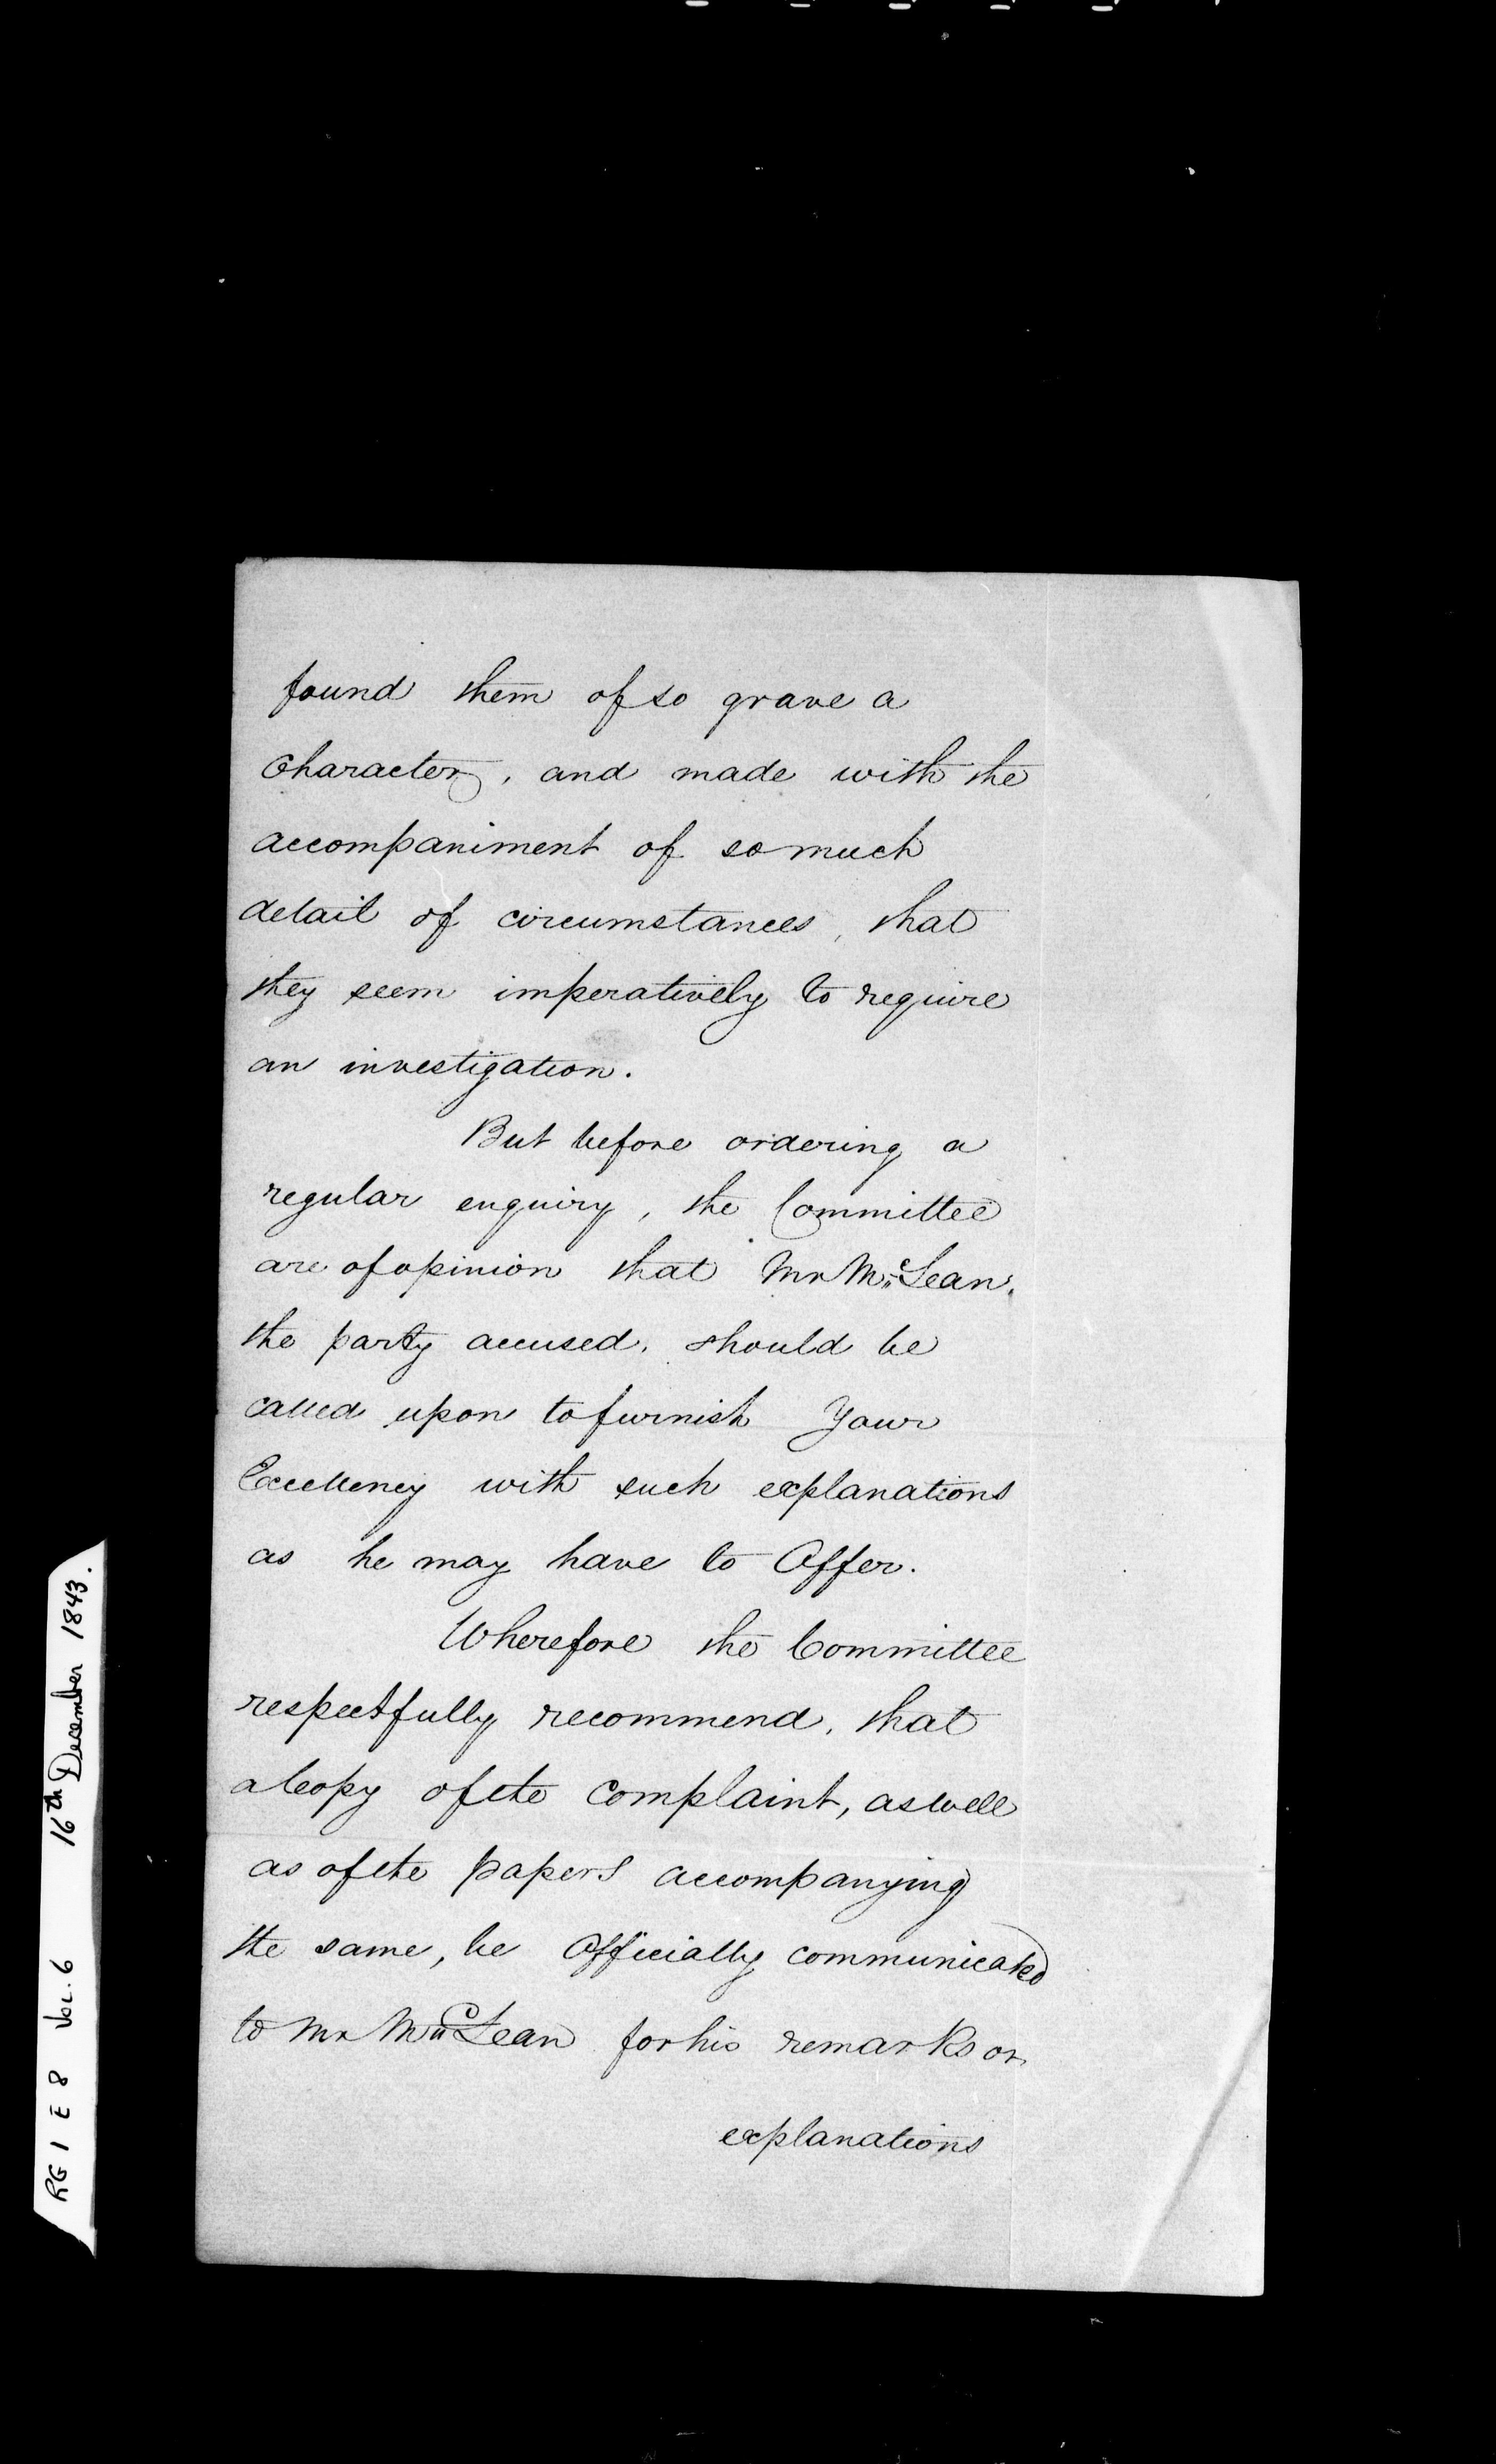 found them of so grave a
character, and made with the
accompaniment of so much
detail of circumstances, that
they seem imperatively to require
an investigation.
But before ordering a
regular enquiry, the Committee
are of opinion that Mr McLean,
the party accused, should be
called upon to furnish Your
Excellency with such explanations
as he may have to Offer.
Wherefore the Committee
respectfully recommend, that
a Copy of the Complaint, as well
as of the papers accompanying
the same, be Officially communicated
to Mr McLean for his remarks or
explanations
RG 1 E 8 Vol. 6 16th December 1843.